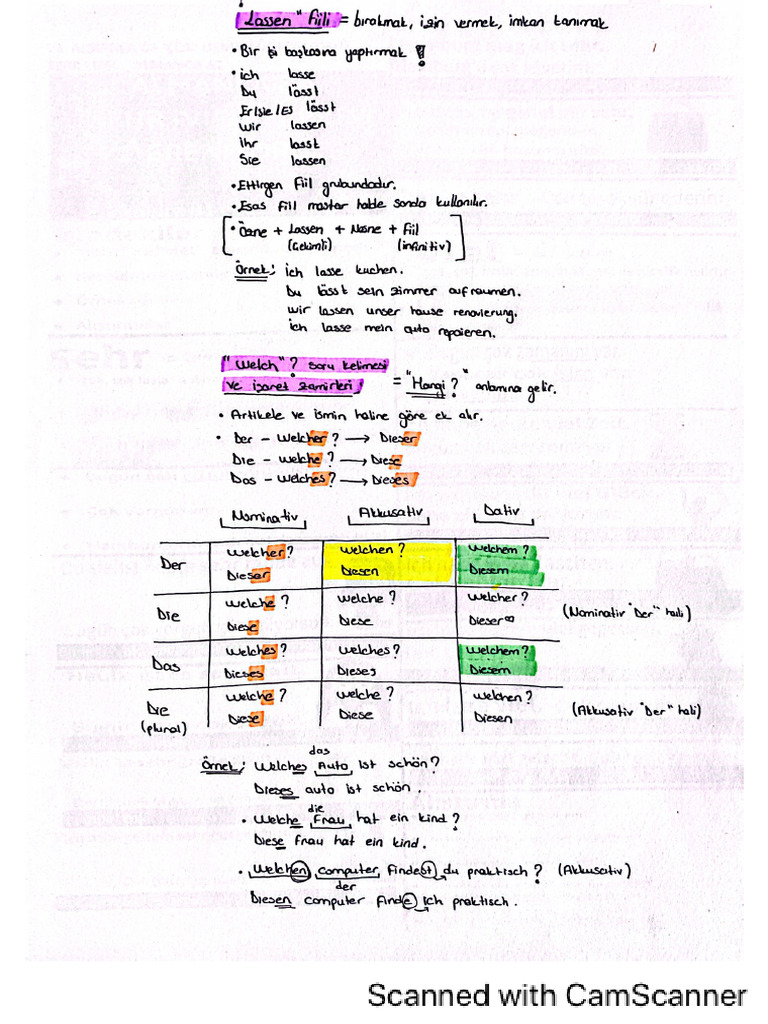 "Lassen" Fiili = bırakmak, izin vermek, imkan tanımak
• Bir işi başkasına yaptırmak !
• ich lasse
Du lässt
Er/sie/Es lässt
wir lassen
Ihr lasst
Sie lassen
• Ettirgen Fiil grubundadır.
• Esas fiil mastar halde sonda kullanılır.
• Özne + Lassen + Nesne + Fiil
(Çekimli) (infinitiv)
Örnek: ich lasse kuchen.
Du lässt sein zimmer aufräumen.
wir lassen unser hause renovierung.
ich lasse mein auto repaieren.
"Welch"? soru kelimesi
ve işaret zamirleri = "Hangi?" anlamına gelir.
• Artikele ve ismin haline göre ek alır.
• Der - welcher? → Dieser
Die - welche? → Diese
Das - welches? → Dieses
Nominativ Akkusativ Dativ
Der welcher? welchen? welchem?
Dieser Diesen Diesem
Die welche? welche? welcher? (Nominativ "Der" hali)
Diese Diese Dieser
Das welches? welches? welchem?
Dieses Dieses Diesem
Die (plural) welche? welche? welchen? (Akkusativ "Der" hali)
Diese Diese Diesen
das
Örnek: Welches Auto ist schön?
Dieses auto ist schön.
die
• Welche Frau hat ein kind?
Diese frau hat ein kind.
• Welchen computer findest du praktisch? (Akkusativ)
der
Diesen computer finde ich praktisch.
Scanned with CamScanner